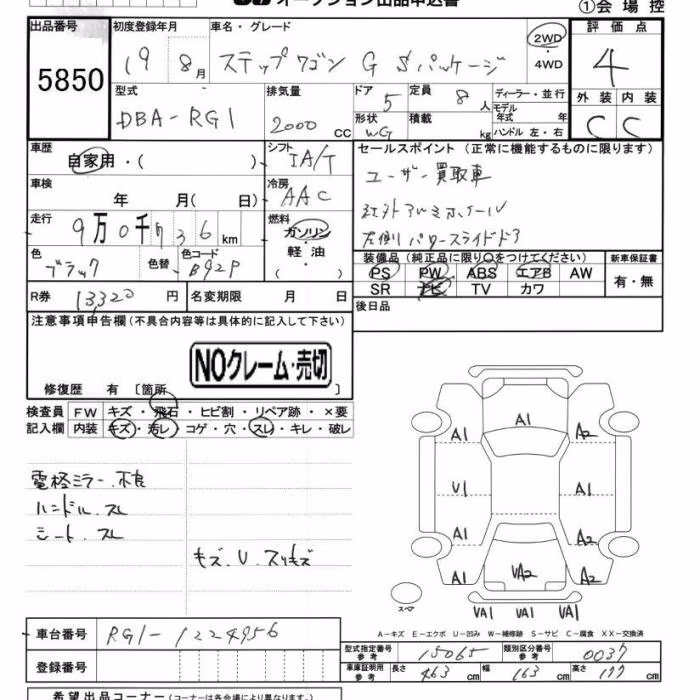 オークション出品申込書
①会場控
出品番号 初度登録年月 車名・グレード 評価点
5850 19 8月 ステップワゴン G Sパッケージ 2WD 4WD 4
型式 排気量 ドア 定員 ディーラー・並行 外装 内装
DBA-RG1 2000 cc 5 8人 モデル年式 年 C C
形状 積載 ハンドル 左・右
WG kg
車歴 シフト セールスポイント (正常に機能するものに限ります)
自家用・( ) IA/T ユーザー買取車
車検 冷房
年 月( 日) AAC 社外アルミホイール
走行 燃料
9万0千 36km ガソリン 左側パワースライドドア
色 色替 色コード 軽油
ブラック B92P ( )
装備品 (純正品に限り○をつけてください) 新車保証書
PS PW ABS エアB AW 有・無
SR ナビ TV カワ
R券 13320円 名変期限 月 日 後日品
注意事項申告欄(不具合内容等は具体的に記入して下さい)
NOクレーム・売切
修復歴 有 〔箇所 〕
検査員 FW キズ・飛石・ヒビ割・リペア跡・×要
記入欄 内装 キズ・汚レ・コゲ・穴・スレ・キレ・破レ
電格ミラー.不良
ハンドル.スレ
シート.スレ
キズ.U.スリキズ
A1 A1 A2
U1 A1
A1 A1
A1 UA2 A2
スペア UA1 UA1 UA1
A-キズ E-エクボ U-凹み W-補修跡 S-サビ C-腐食 XX-交換済
車台番号 RG1-1224956
型式指定番号 参考 15065 類別区分番号 参考 0037
登録番号
車庫証明用 参考 長さ 463cm 幅 163cm 高さ 177cm
希望出品コーナー(コーナーは各会場により異なります。)